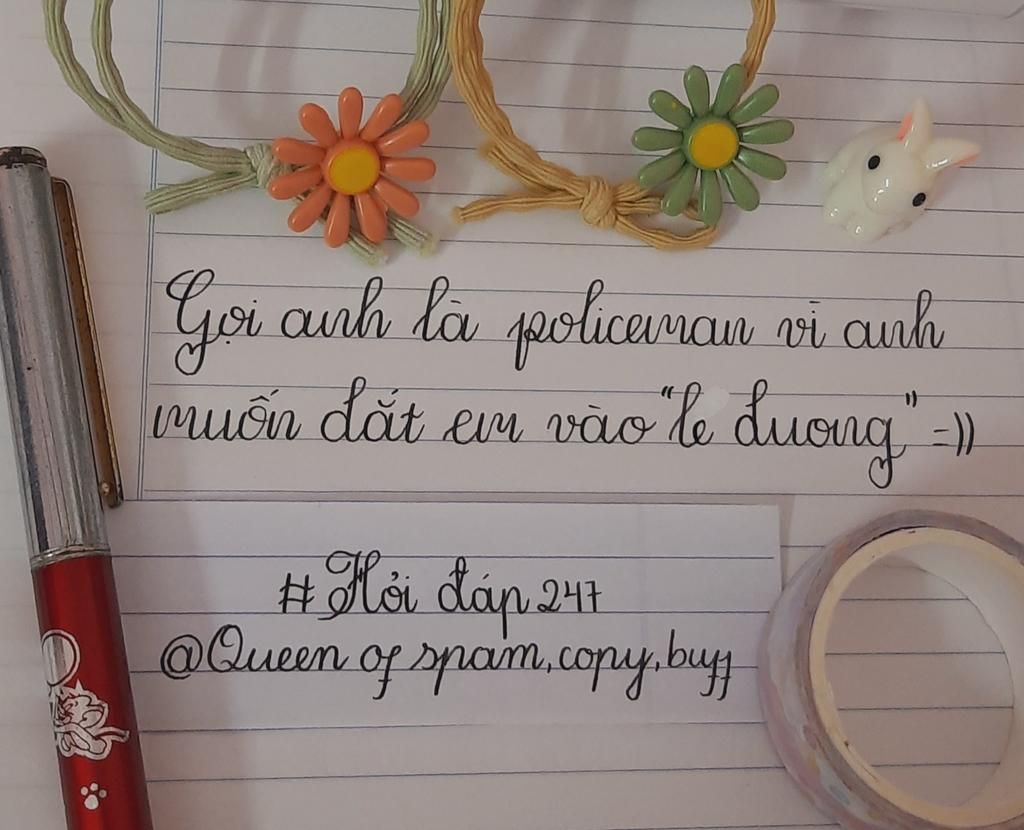 Gọi anh là policeman vì anh
muốn đắt em vào "le đuong" =))
#Hỏi đáp 247
@Queen of spam, copy, buff